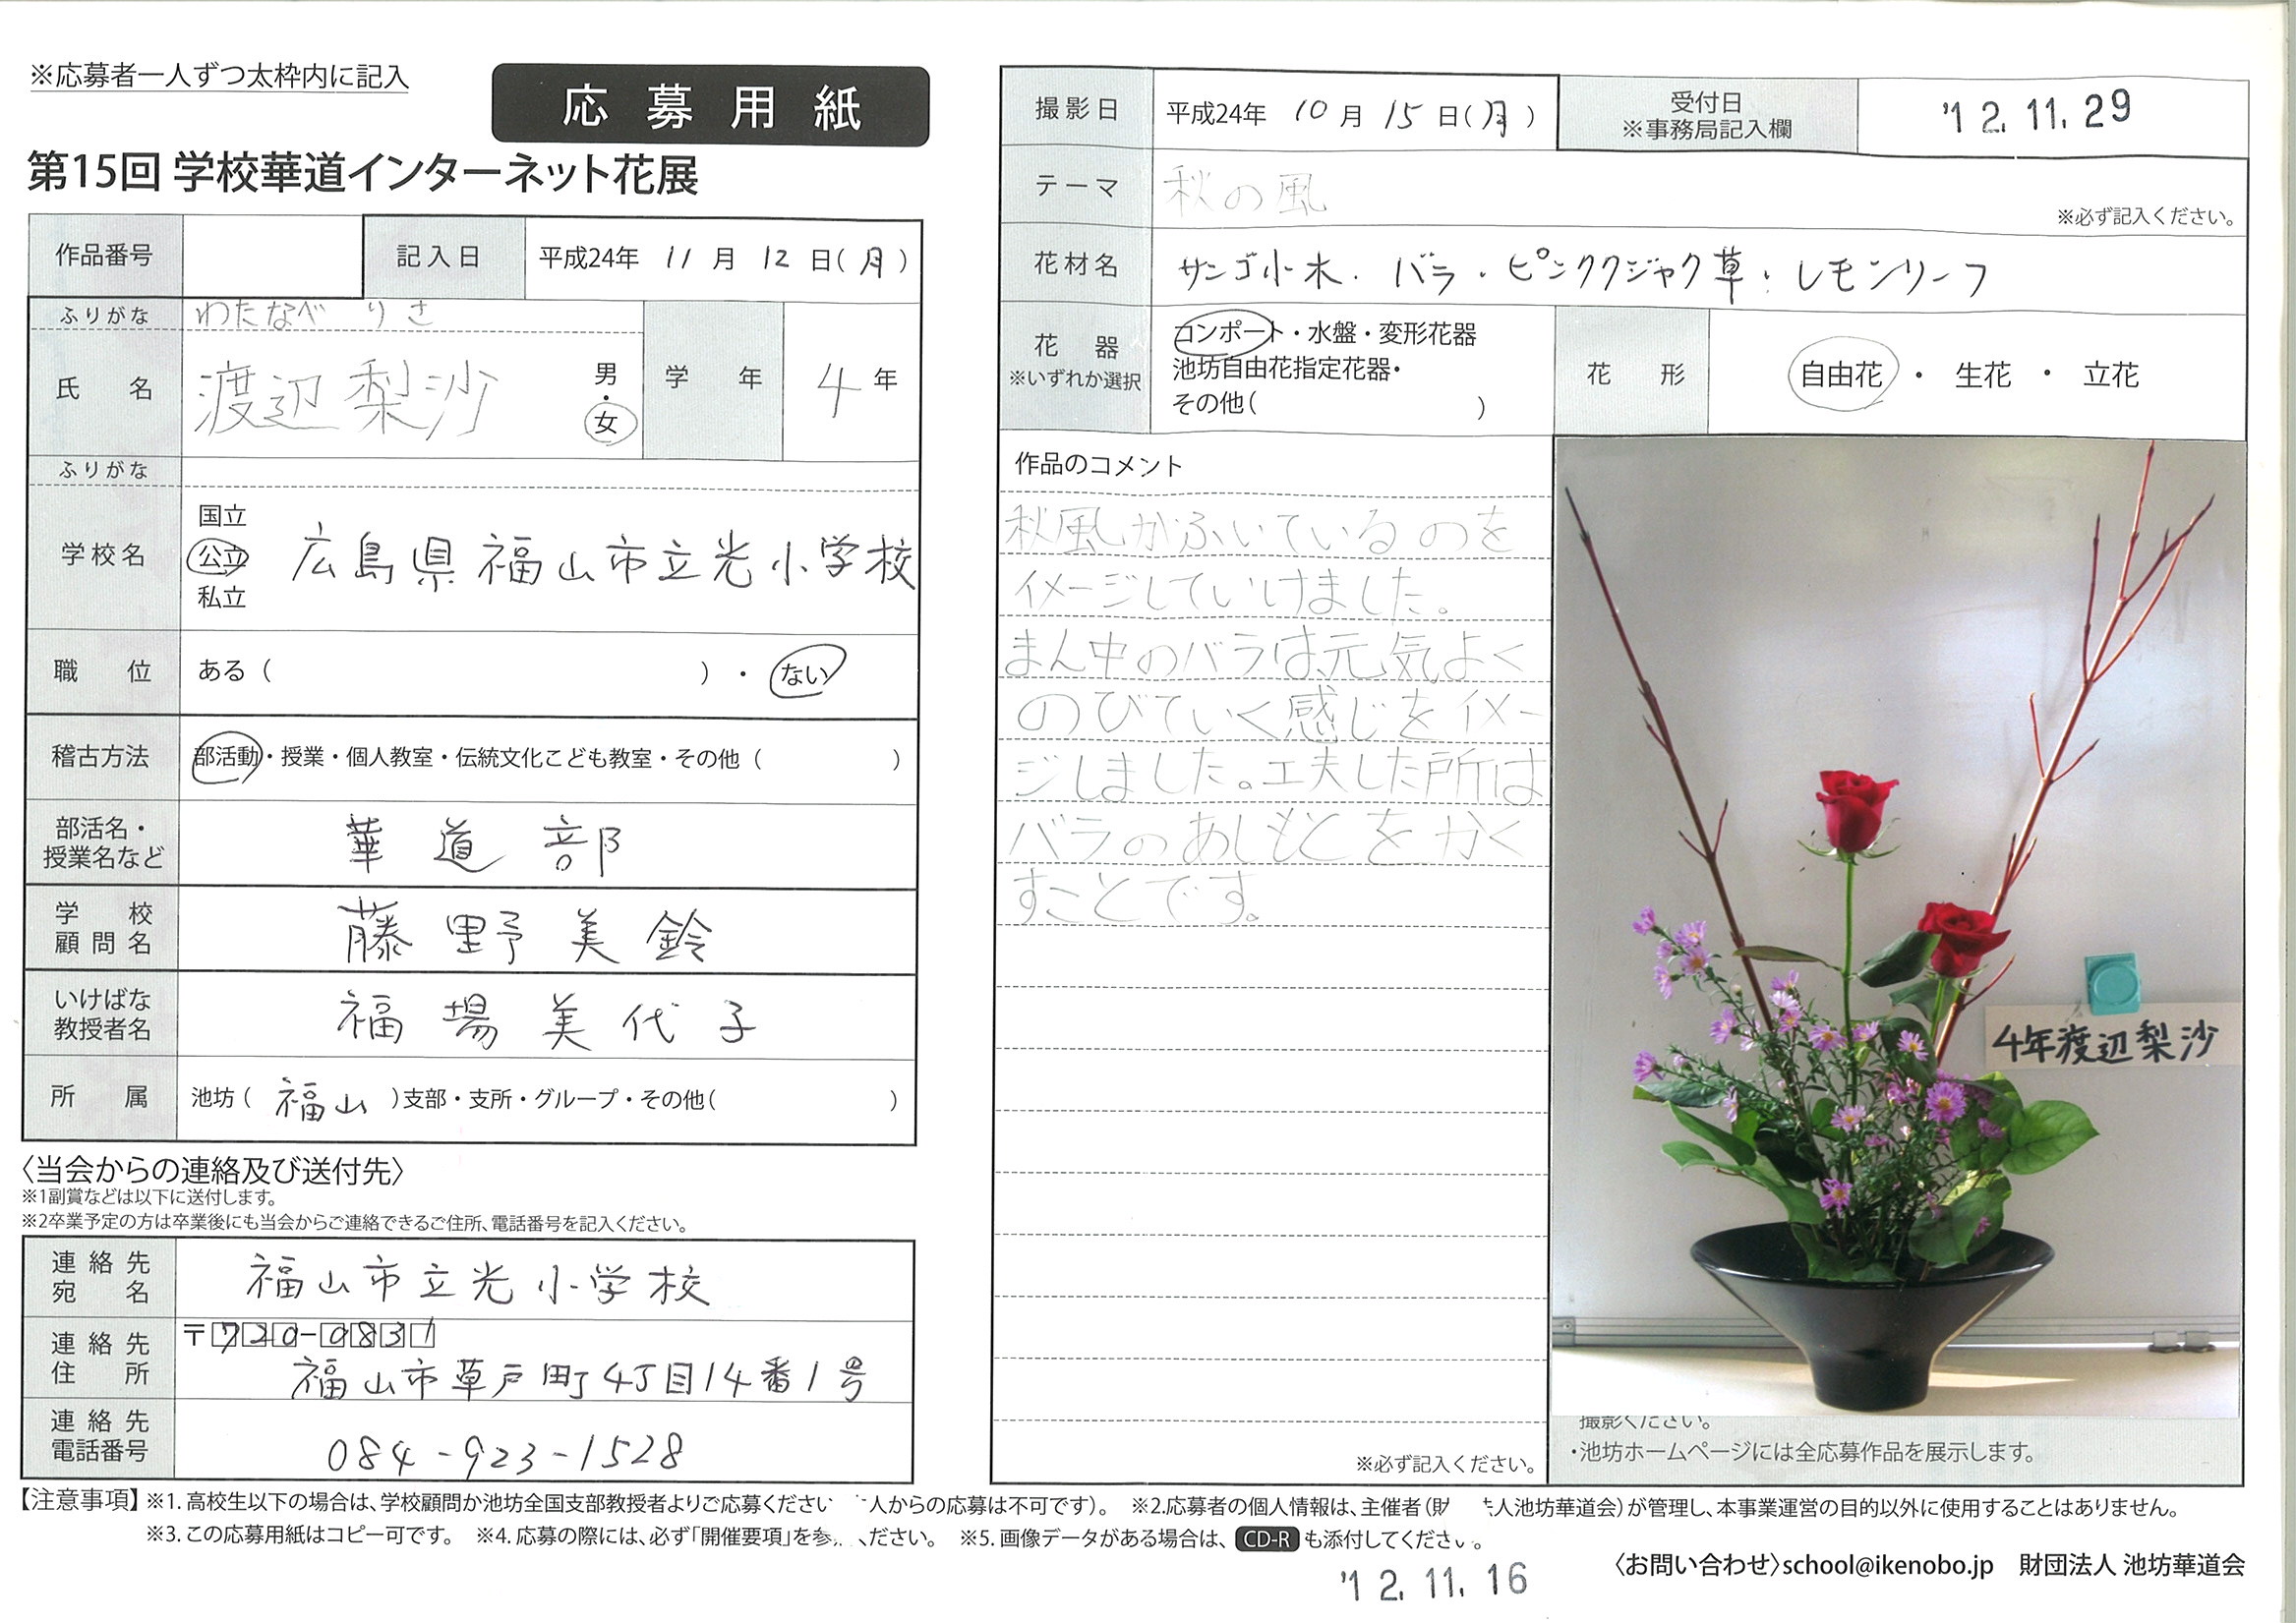 ※応募者一人ずつ太枠内に記入
応募用紙
第15回 学校華道インターネット花展
作品番号
記入日 平成24年 11月 12日(月)
ふりがな わたなべ りさ
氏名 渡辺梨沙 男・女
学年 4年
ふりがな
学校名 国立 公立 私立 広島県福山市立光小学校
職位 ある( )・ない
稽古方法 部活動・授業・個人教室・伝統文化こども教室・その他( )
部活名・授業名など 華道部
学校顧問名 藤野美鈴
いけばな教授者名 福場美代子
所属 池坊(福山)支部・支所・グループ・その他( )
〈当会からの連絡及び送付先〉
※1副賞などは以下に送付します。
※2卒業予定の方は卒業後にも当会からご連絡できるご住所、電話番号を記入ください。
連絡先宛名 福山市立光小学校
連絡先住所 〒720-0831
福山市草戸町4丁目14番1号
連絡先電話番号 084-923-1528
撮影日 平成24年 10月 15日(月)
受付日 ※事務局記入欄 '12.11.29
テーマ 秋の風
※必ず記入ください。
花材名 サンゴ小木・バラ・ピンククジャク草・レモンリーフ
花器 ※いずれか選択 コンポート・水盤・変形花器
池坊自由花指定花器・
その他( )
花形 自由花・生花・立花
作品のコメント
秋風がふいているのを
イメージしていけました。
まん中のバラは元気よく
のびていく感じをイメー
ジしました。工夫した所は
バラのあしもとをかく
すことです。
※必ず記入ください。
4年渡辺梨沙
撮影ください。
・池坊ホームページには全応募作品を展示します。
【注意事項】※1.高校生以下の場合は、学校顧問か池坊全国支部教授者よりご応募ください 人からの応募は不可です)。 ※2.応募者の個人情報は、主催者(財 人池坊華道会)が管理し、本事業運営の目的以外に使用することはありません。
※3.この応募用紙はコピー可です。 ※4.応募の際には、必ず「開催要項」を参 ください。 ※5.画像データがある場合は、CD-Rも添付してください。
〈お問い合わせ〉school@ikenobo.jp 財団法人 池坊華道会
'12.11.16